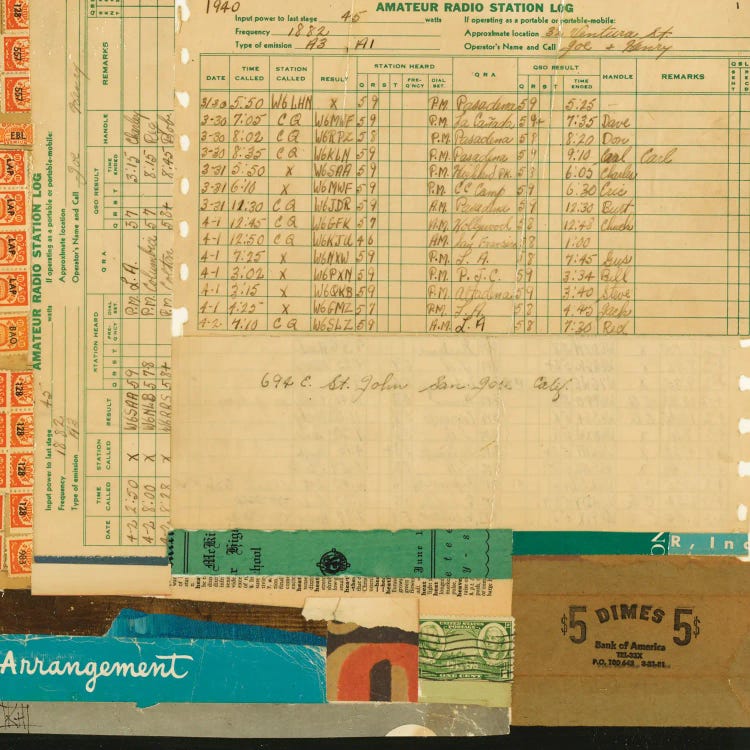 1940 AMATEUR RADIO STATION LOG
Input power to last stage 45 watts If operating as a portable or portable-mobile:
Frequency 1882 Approximate location Ventura St.
Type of emission A3 A1 Operator's Name and Call Joe + Henry
DATE TIME CALLED STATION CALLED RESULT STATION HEARD Q R S T FRE-Q'NCY DIAL SET. Q R A QSO RESULT Q R S T TIME ENDED HANDLE REMARKS
3/30 5:50 W6LHN X 59 P.M. Pasadena 59 5:25 —
3-30 7:05 CQ W6MWF 59 P.M. La Cañada 59+ 7:35 Dave
3-30 8:02 CQ W6RPZ 58 P.M. Pasadena 58 8:20 Don
3-30 8:35 CQ W6KLN 59 P.M. Pasadena 59 9:10 Carl Carl
3-31 5:50 X W6SAA 59 P.M. Highland Pk. 58 6:05 Charlie
3-31 6:10 X W6MWF 59 P.M. CC Camp 59 6:30 Eric
3-31 11:30 CQ W6JDR 59 A.M. Pasadena 59 12:30 Burt
4-1 12:45 CQ W6GFK 57 A.M. Hollywood 58 12:48 Chuck
4-1 12:50 CQ W6KJU 46 A.M. San Francisco 38 1:00
4-1 7:25 X W6NXW 59 P.M. L.A. 58 7:45 Gus
4-1 3:02 X W6PXN 59 P.M. P.J.C. 59 3:34 Bill
4-1 3:15 X W6QKB 59 P.M. Altadena 59 3:40 Steve
4-1 4:25 X W6GMZ 57 P.M. L.A. 58 4:45 Jack
4-2 7:10 CQ W6SLZ 59 A.M. L.A 58 7:30 Red
694 E. St. John San Jose Calif.
AMATEUR RADIO STATION LOG
Input power to last stage 45 watts If operating as a portable or portable-mobile:
Frequency 1882 Approximate location
Type of emission A3 Operator's Name and Call Joe Henry
DATE TIME CALLED STATION CALLED RESULT STATION HEARD Q R S T FRE-Q'NCY DIAL SET. Q R A QSO RESULT Q R S T TIME ENDED HANDLE REMARKS
4-2 2:50 X W6SAA 59 P.M. L.A. 57 3:15 Charley
4-2 8:00 X W6NLB 578 P.M. Columbia 57 8:15 Rod
4-2 8:28 X W6RRS 58+ P.M. 58+ 8:45 Bob
128
557
557
EBL
LAP
LAP
LAP
LAP
BAO
128
128
128
128
903
McKi
r Hig
hool
June 1
R, Inc
NO
5 DIMES 5
Bank of America
P.O.
UNITED STATES
POSTAGE
ONE CENT
Arrangement